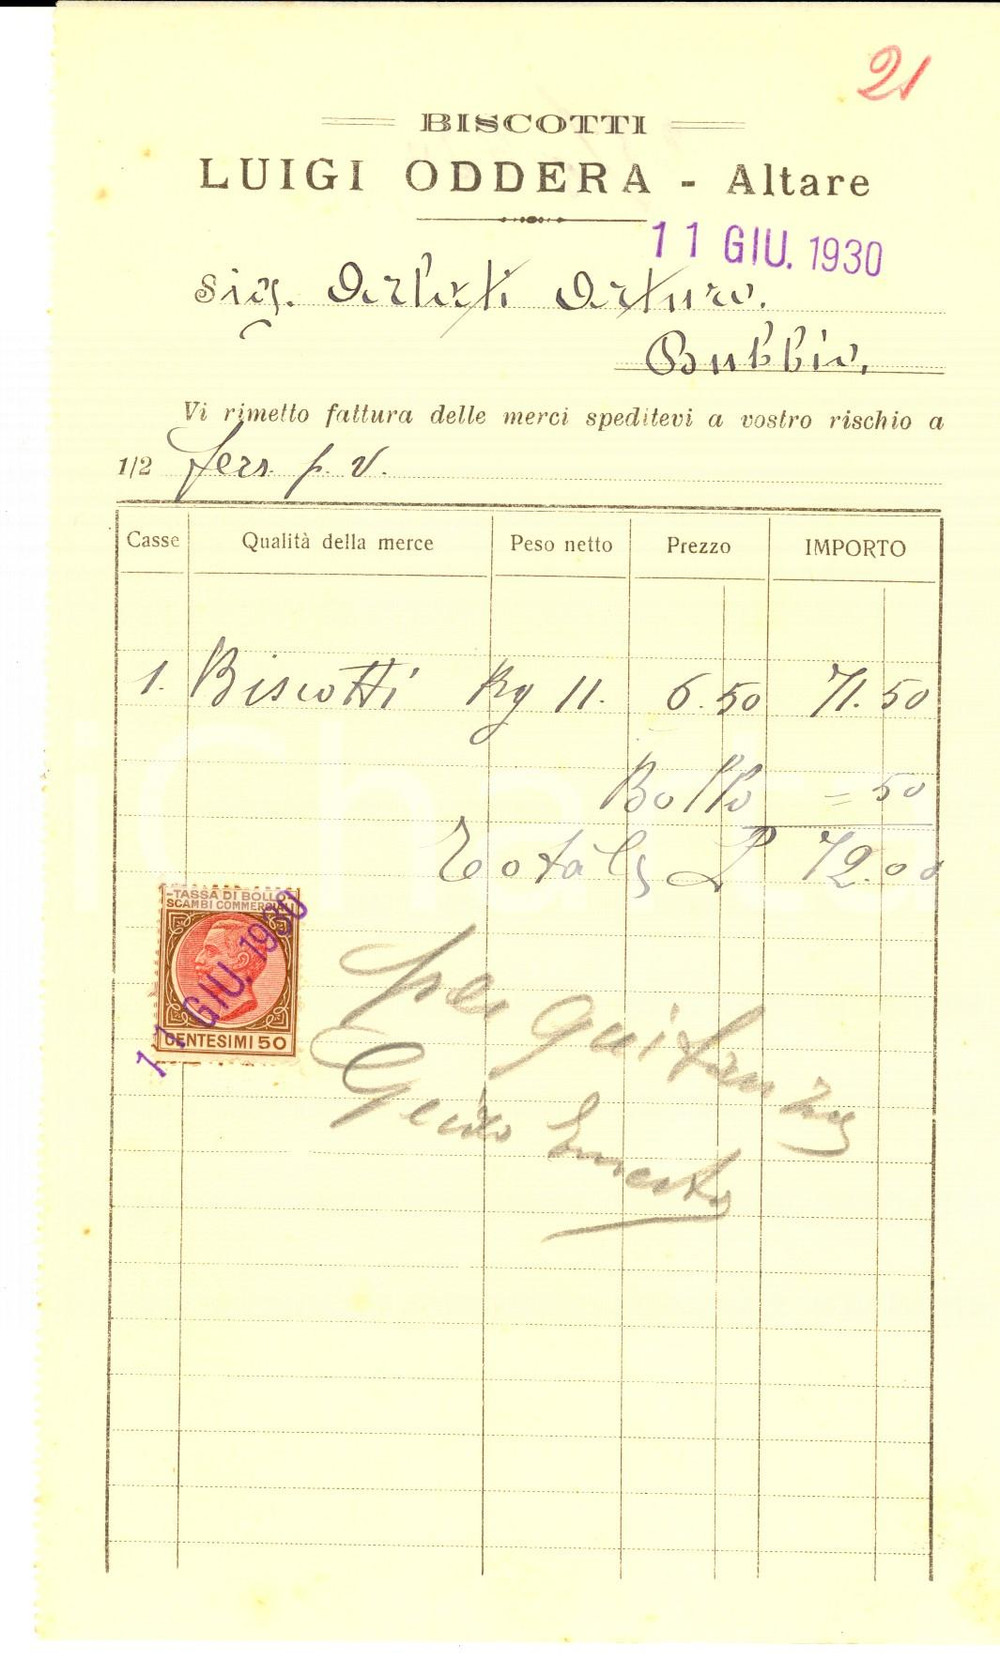 21
BISCOTTI
LUIGI ODDERA - Altare
11 GIU. 1930
Sig. Arturo.
Bubbio.
Vi rimetto fattura delle merci speditevi a vostro rischio a
1/2 p. v.
Casse Qualità della merce Peso netto Prezzo IMPORTO
1. Biscotti Kg 11. 6.50 71.50
Bollo = 50
Totale L 72.00
TASSA DI BOLLO
SCAMBI COMMERCIALI
11 GIU. 1930
CENTESIMI 50
per quitanza
Guido Ernesto